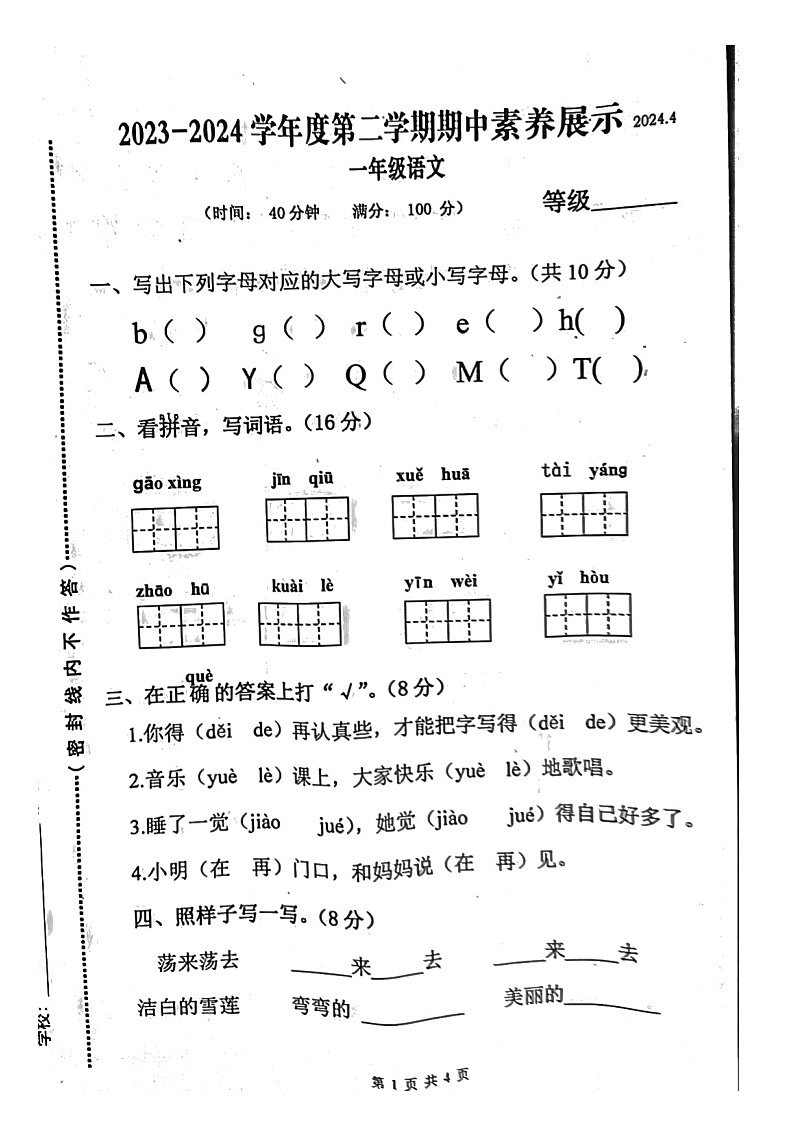 2023-2024学年度第二学期期中素养展示 2024.4
一年级语文
(时间: 40分钟 满分: 100 分) 等级______
一、写出下列字母对应的大写字母或小写字母。(共10分)
b( ) g( ) r( ) e( ) h( )
A( ) Y( ) Q( ) M( ) T( )
pīn
二、看拼音,写词语。(16分)
gāo xìng jīn qiū xuě huā tài yáng
zhāo hū kuài lè yīn wèi yǐ hòu
què
三、在正确的答案上打“√”。(8分)
1.你得(děi de)再认真些,才能把字写得(děi de)更美观。
2.音乐(yuè lè)课上,大家快乐(yuè lè)地歌唱。
3.睡了一觉(jiào jué),她觉(jiào jué)得自己好多了。
4.小明(在 再)门口,和妈妈说(在 再)见。
四、照样子写一写。(8分)
荡来荡去 _____来_____去 _____来_____去
洁白的雪莲 弯弯的_________ 美丽的_________
第1页共4页
(密封线内不作答)
学校: